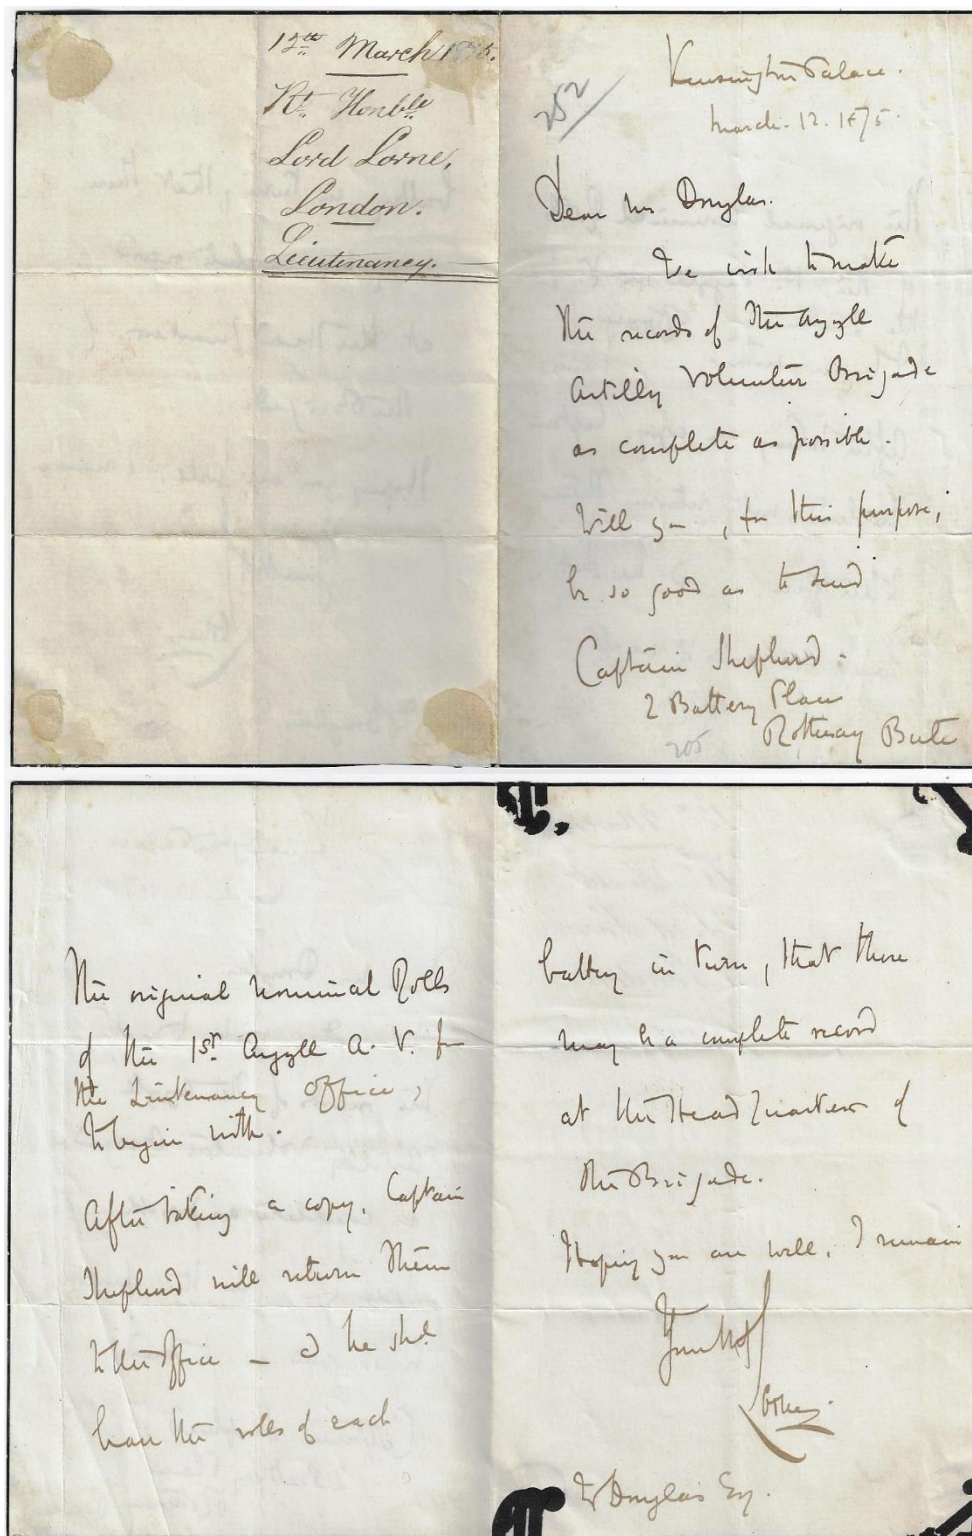 12th March 1875.
Rt. Honble
Lord Lorne,
London.
Lieutenancy.
252
Kensington Palace.
March. 12. 1875.
Dear Mr Douglas.
We wish to make
the records of the Argyll
Artilly Volunteer Brigade
as complete as possible.
Will you, for this purpose,
be so good as to send
Captain Shepherd.
2 Battery Place
Rothesay Bute
205
The original nominal Rolls
of the 1st Argyll A. V. fr
the Lieutenancy office,
to begin with.
After taking a copy, Captain
Shepherd will return them
to the office – & he shd
have the rolls of each
battery in turn, that there
may be a complete record
at the Head Quarters of
the Brigade.
Hoping you are well, I remain
Lorne
Douglas Esq.